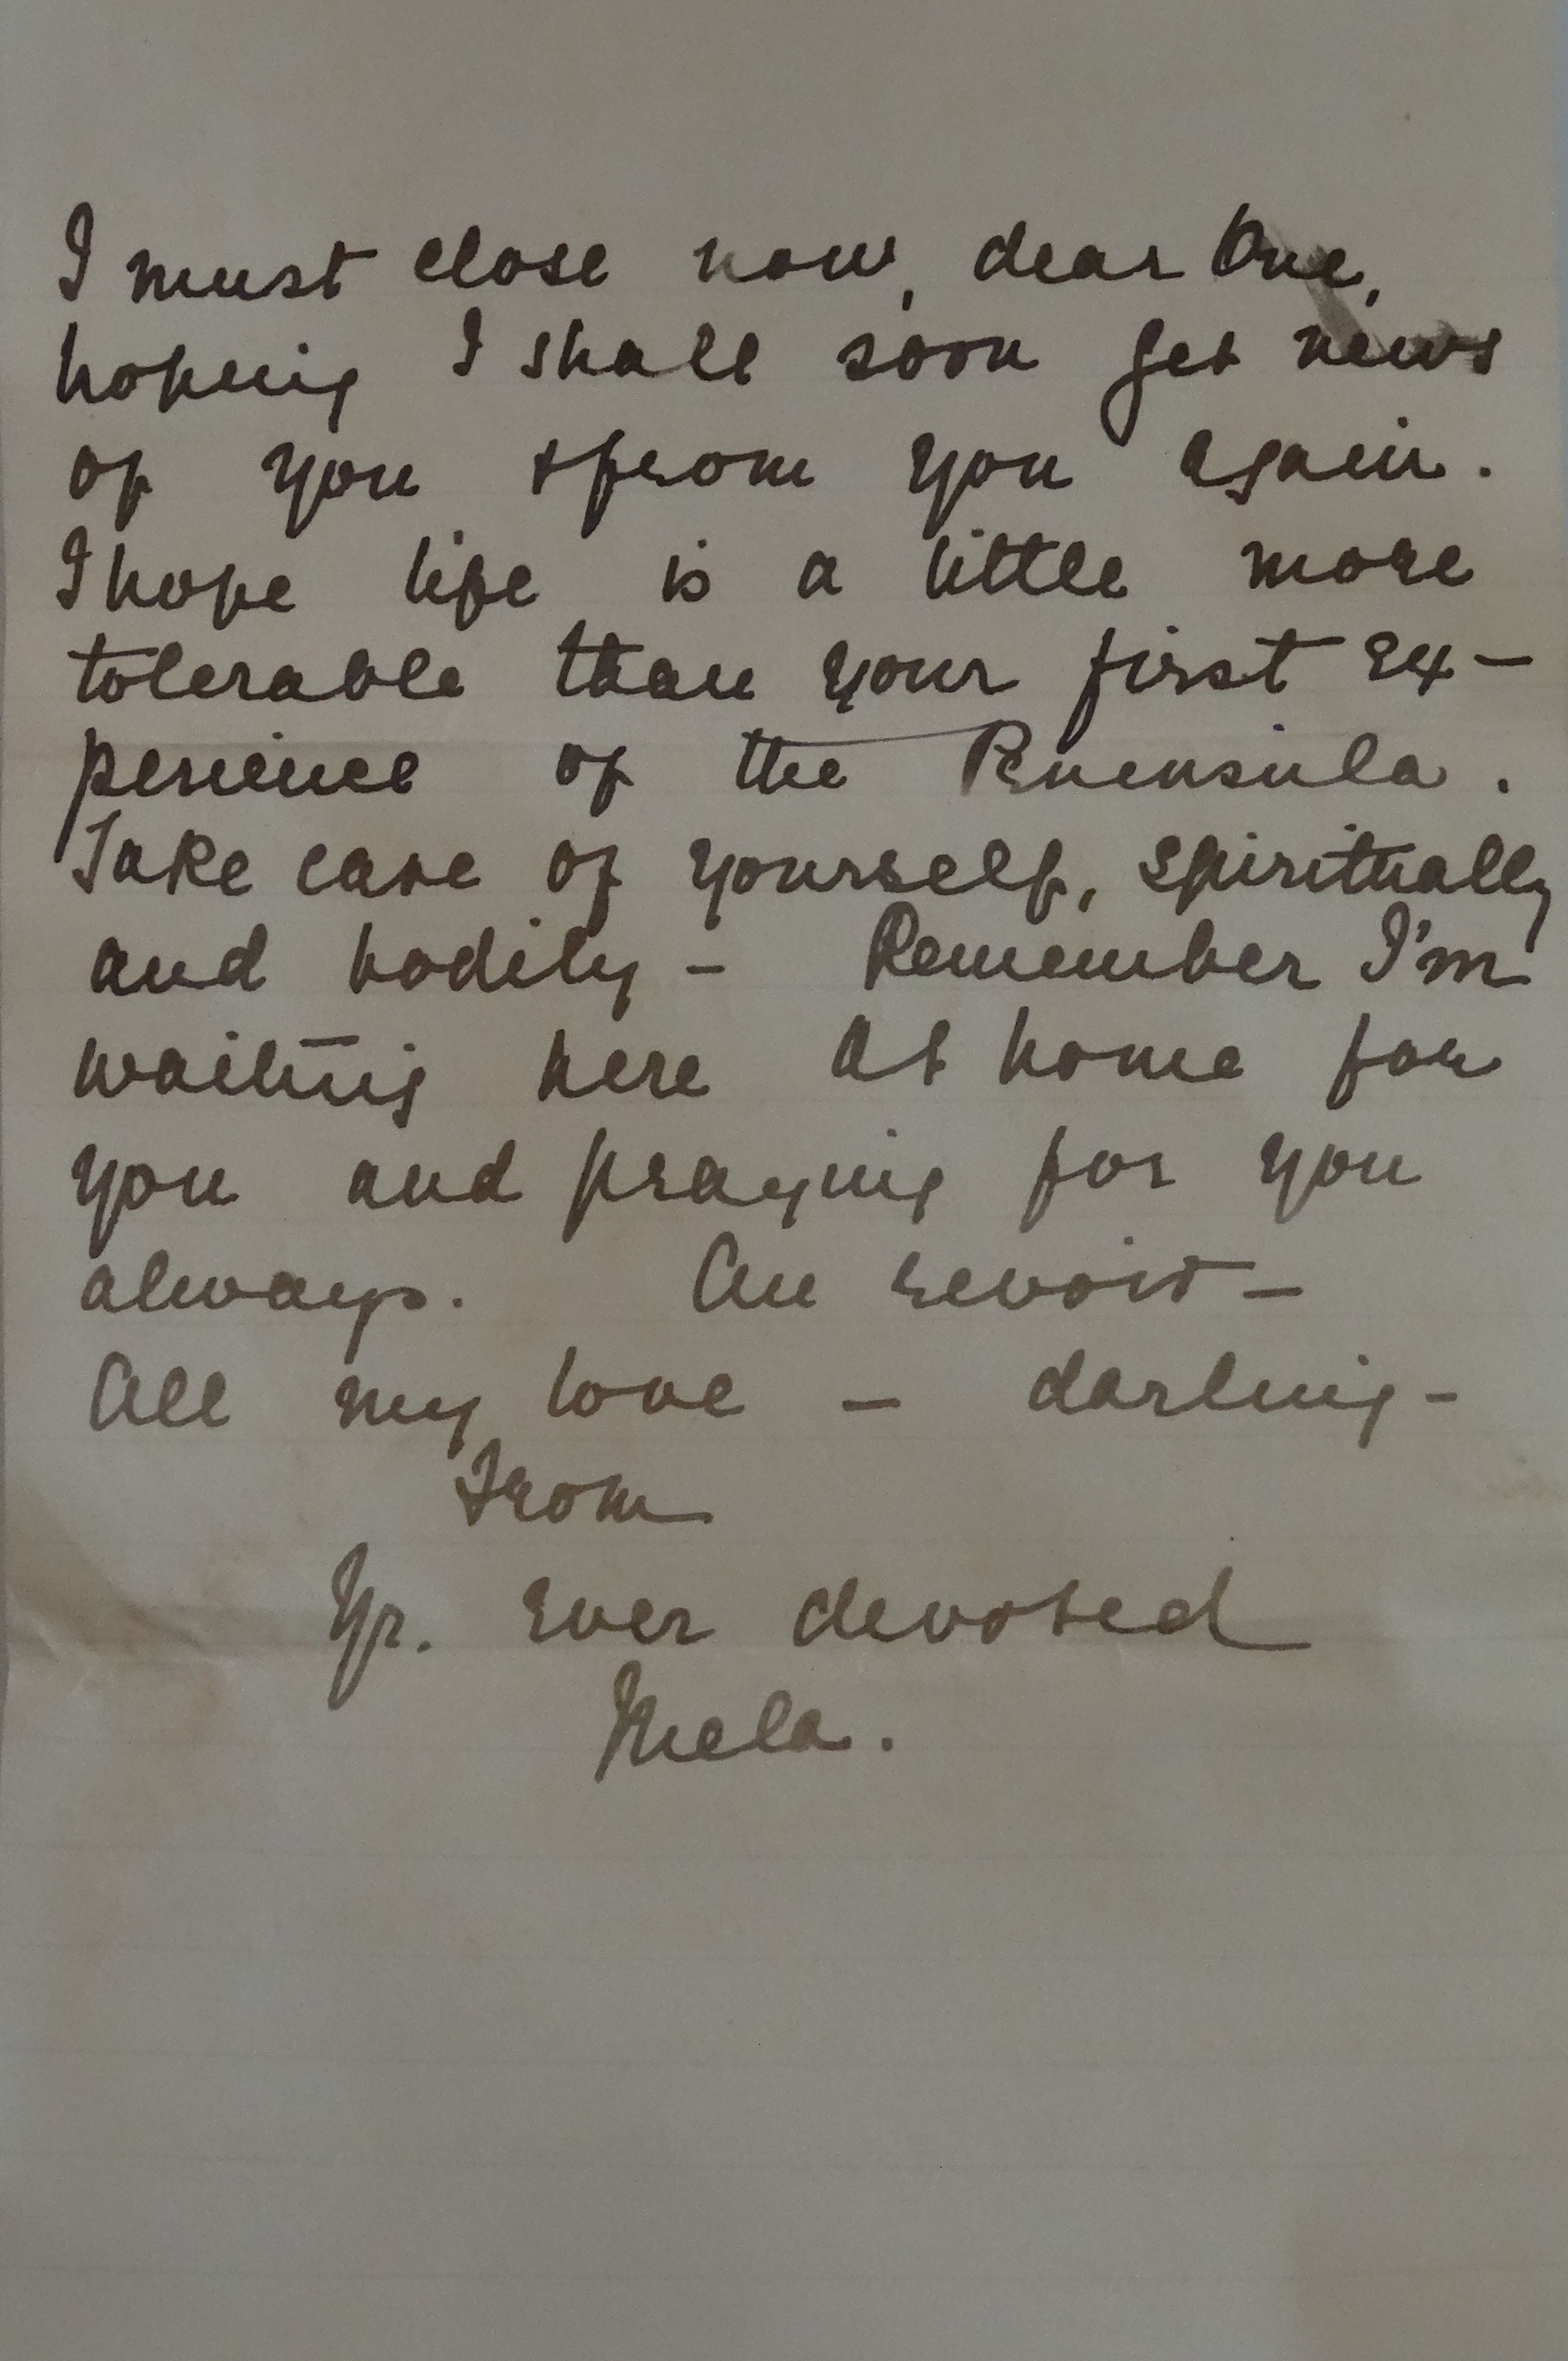 I must close now, dear One,
hoping I shall soon get news
of you & from you again.
I hope life is a little more
tolerable than your first ex-
perience of the Peninsula.
Take care of yourself, spiritually
and bodily - Remember I'm
waiting here at home for
you and praying for you
always. Au revoir -
All my love - darling -
From
Yr. ever devoted
Mela.